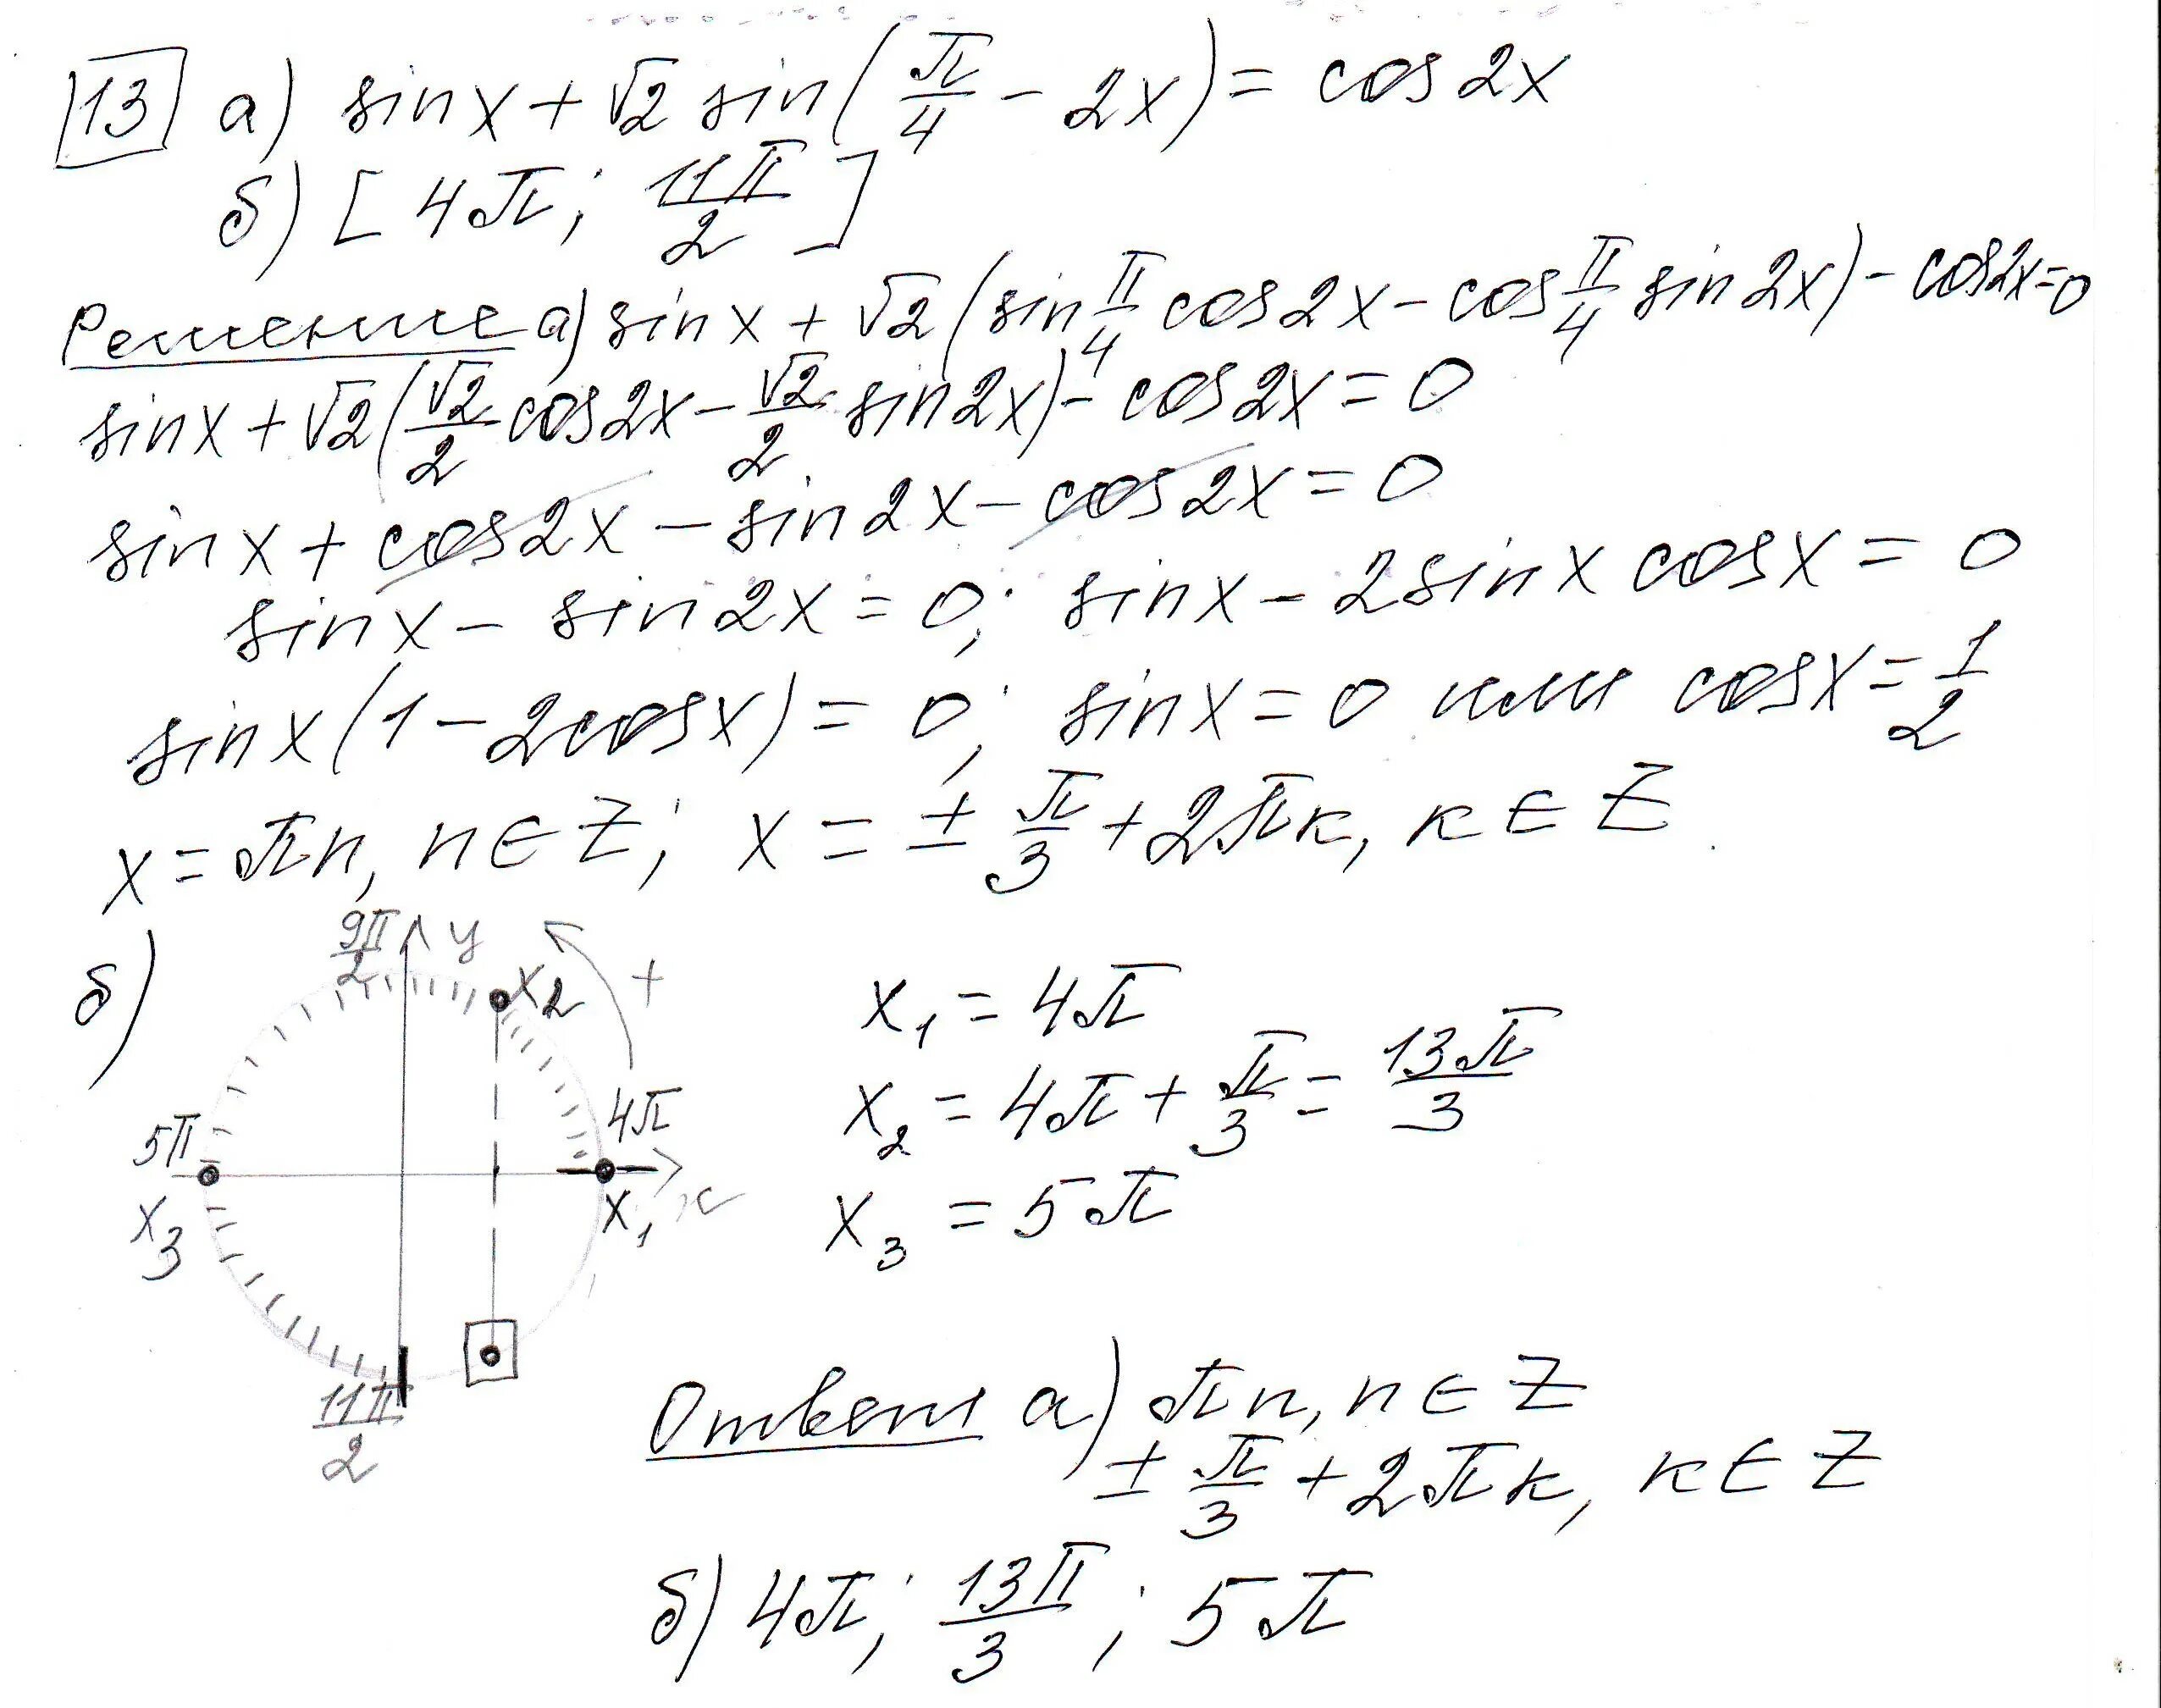 13 а) sin x + √2 sin(π/4 − 2x) = cos 2x
б) [4π; 11π/2]
Решение а) sin x + √2(sin π/4 cos 2x − cos π/4 sin 2x) − cos 2x = 0
sin x + √2(√2/2 cos 2x − √2/2 sin 2x) − cos 2x = 0
sin x + cos 2x − sin 2x − cos 2x = 0
sin x − sin 2x = 0; sin x − 2 sin x cos x = 0
sin x (1 − 2cos x) = 0; sin x = 0 или cos x = 1/2
x = πn, n ∈ Z; x = ± π/3 + 2πк, к ∈ Z
б)
9π/2 y
x₂ +
4π
5π
x₁ x
x₃
11π/2
x₁ = 4π
x₂ = 4π + π/3 = 13π/3
x₃ = 5π
Ответ а) πn, n ∈ Z
± π/3 + 2πк, к ∈ Z
б) 4π; 13π/3; 5π